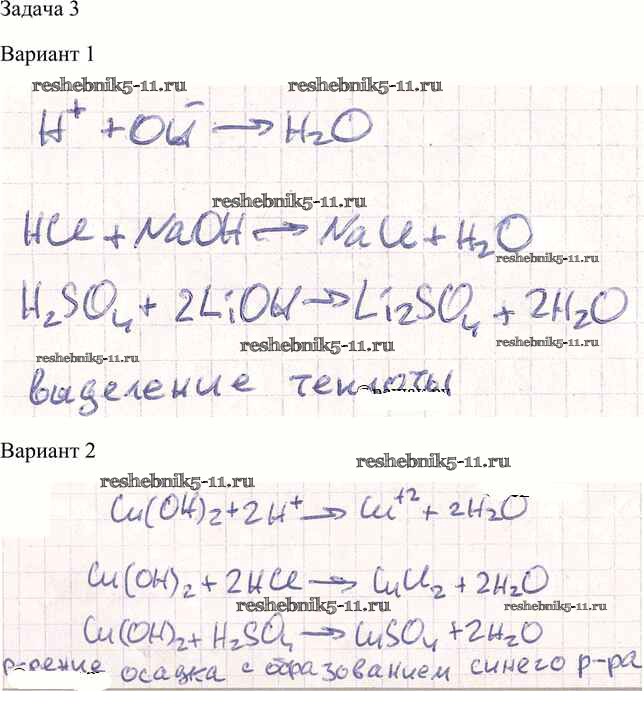 Задача 3
Вариант 1
reshebnik5-11.ru reshebnik5-11.ru
H⁺ + OH⁻ → H₂O
reshebnik5-11.ru
HCl + NaOH → NaCl + H₂O
reshebnik5-11.ru
H₂SO₄ + 2LiOH → Li₂SO₄ + 2H₂O
reshebnik5-11.ru reshebnik5-11.ru reshebnik5-11.ru
выделение теплоты
Вариант 2
reshebnik5-11.ru reshebnik5-11.ru
Cu(OH)₂ + 2H⁺ → Cu⁺² + 2H₂O
Cu(OH)₂ + 2HCl → CuCl₂ + 2H₂O
reshebnik5-11.ru reshebnik5-11.ru
Cu(OH)₂ + H₂SO₄ → CuSO₄ + 2H₂O
р-рение осадка с образованием синего р-ра